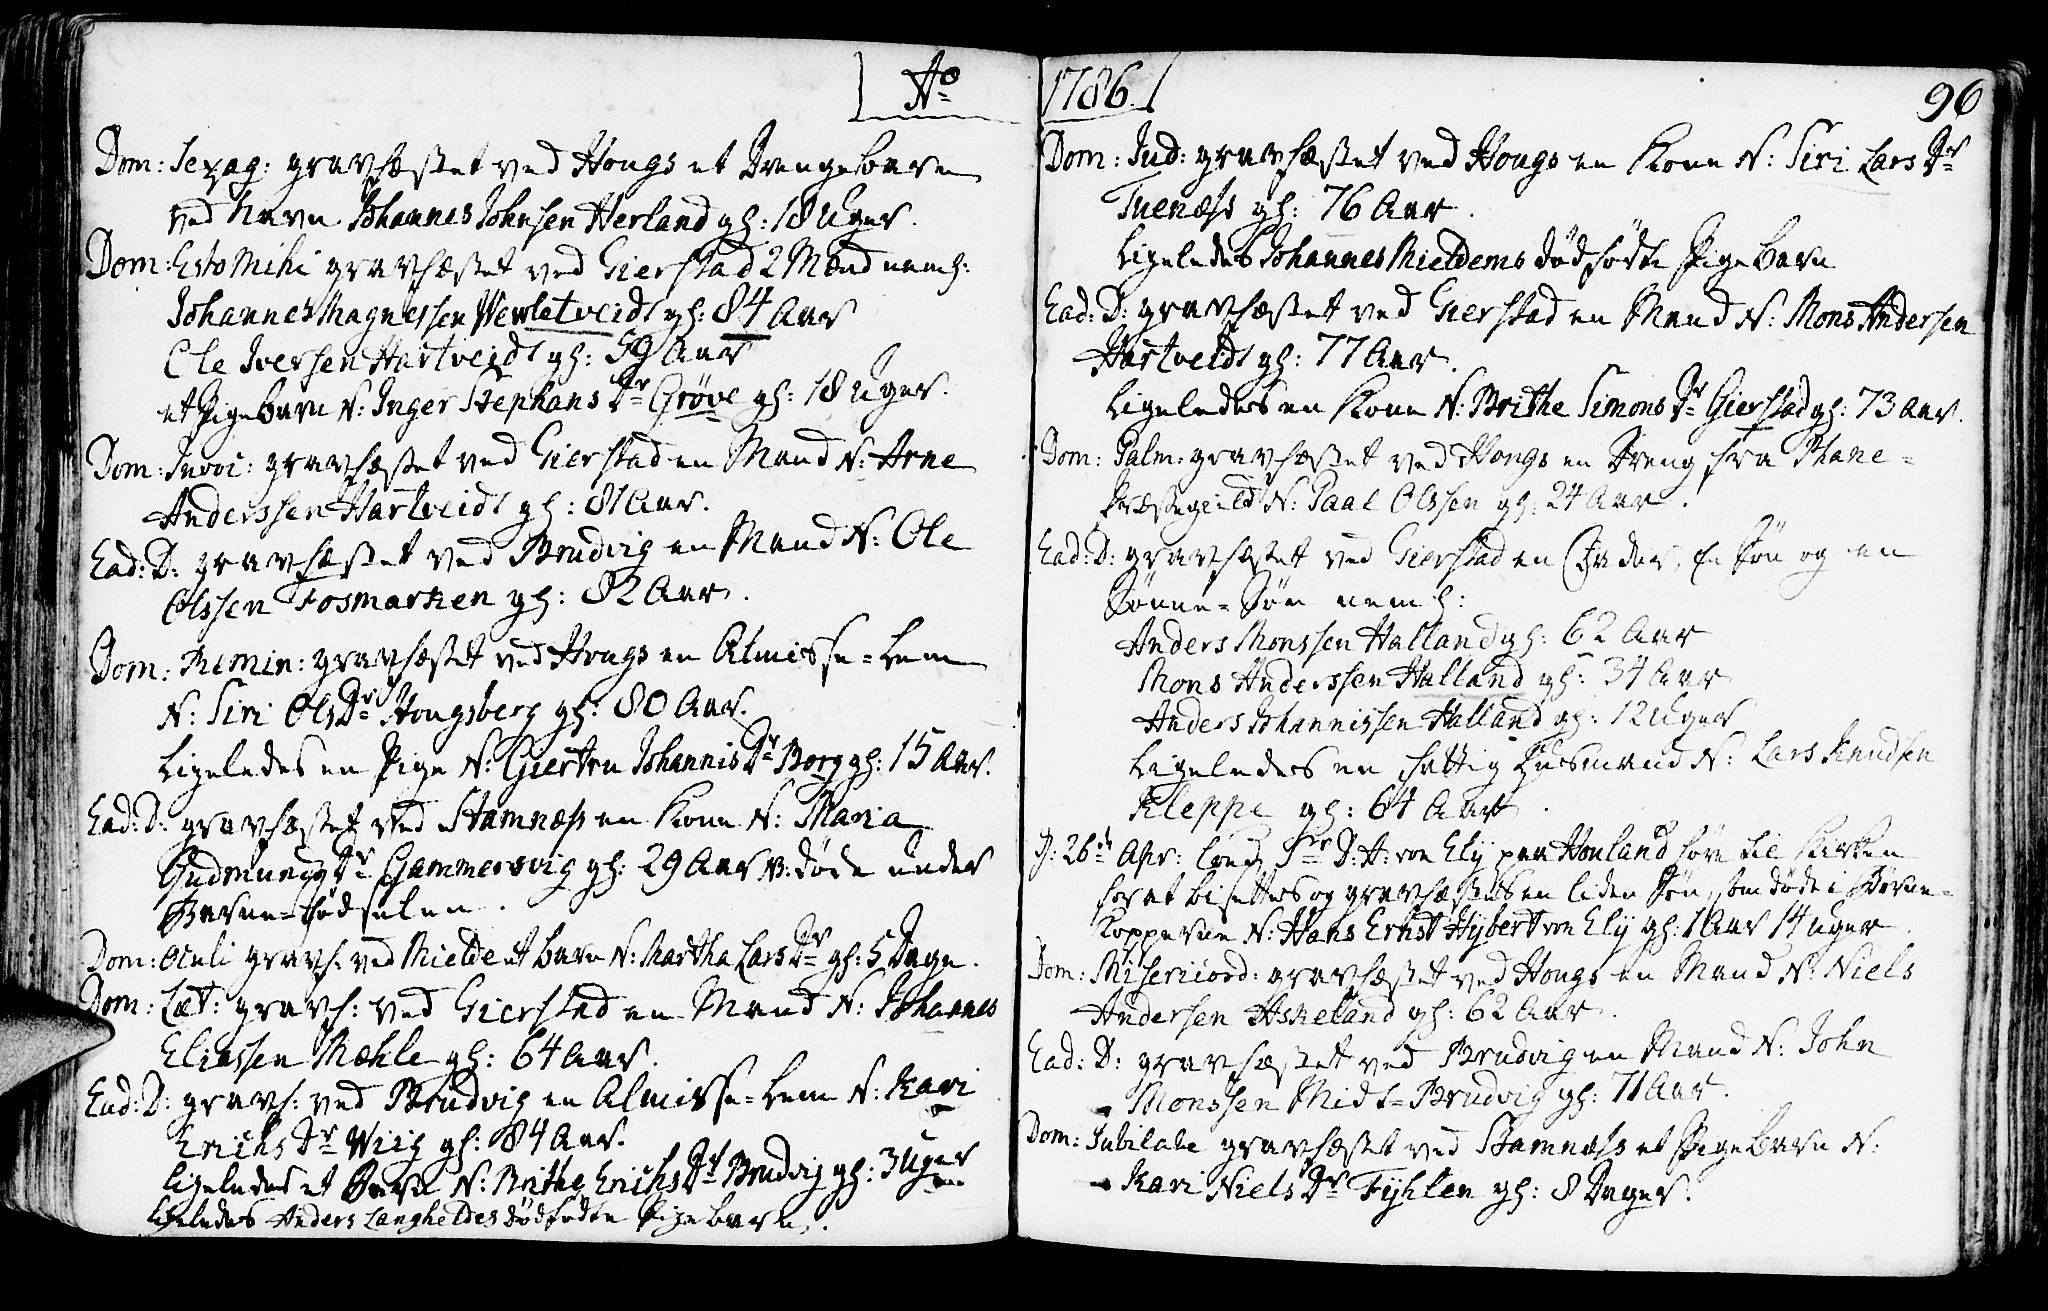 Ao
Dom: Sexag: gravfæstet ved Hougs et Drengebarn
ved Navn Johannes Johnsen Herland gl: 18 Uger.
Dom: Esto Mihi gravfæstet ved Gierstad 2 Mænd neml:
Johannes Magnessen Wewletveidt gl: 84 Aar
Ole Iversen Hartveidt gl: 59 Aar
et Pigebarn N: Inger Stephans Dr Grøve gl: 18 Uger.
Dom: Invoc: gravfæstet ved Gierstad en Mand N: Arne
Anderssen Hartveidt gl: 81 Aar.
Ead: D: gravfæstet ved Brudvig en Mand N: Ole
Olssen Fosmarken gl: 82 Aar.
Dom: Remin: gravfæstet ved Hougs en Almisse-Lem
N: Siri Ols Dr Hougsberg gl: 80 Aar.
Ligeledes en Pige N: Giertru Johannis Dr Borg gl: 15 Aar.
Ead: D: gravfæstet ved Stamnæss en Kone N: Maria
Gudmunds Dr Hammersvig gl: 29 Aar NB: døde under
Barne-fødselen.
Dom: Oculi gravf: ved Mielde et barn N: Martha Lars Dr gl: 5 Dage.
Dom: Læt: gravf: ved Gierstad en Mand N: Johannes
Eliassen Mæhle gl: 64 Aar.
Ead: D: gravf: ved Brudvig en Almisse-Lem N: Kari
Erichs Dr Wiig gl: 84 Aar.
Ligeledes et Barn N: Brithe Erichs Dr Brudvig gl: 3 Uger
Ligeledes Anders Langheldes dødfødte Pigebarn.
1786.
96
Dom: Jud: gravfæstet ved Hougs en Kone N: Siri Lars Dr
Tuenæss gl: 76 Aar.
Ligeledes Johannes Mieldems dødfødte Pigebarn
Ead: D: gravfæstet ved Gierstad en Mand N: Mons Andersen
Hartveidt gl: 77 Aar.
Ligeledes en Kone N: Brithe Simons Dr Gierstad gl: 73 Aar.
Dom: Palm: gravfæstet ved Hougs en Dreng fra Phane-
Præstegield N: Paal Olssen gl: 24 Aar.
Ead: D: gravfæstet ved Gierstad en Fader, En Søn og en
Sønne-Søn neml:
Anders Monssen Halland gl: 62 Aar
Mons Anderssen Halland gl: 34 Aar
Anders Johannissen Halland gl: 12 Uger
Ligeledes en fattig Huusmand N: Lars Knudsen
Kleppe gl: 64 Aar.
D: 26de Apr: Sr D: H: von Ely paa Houland føre til Kirken
for at bisettes og gravfæstes en liden Søn, som døde i Børne-
Kopperne N: Hans Ernst Hybert von Ely gl: 1 Aar 14 Uger.
Dom: Misericord: gravfæstet ved Hougs en Mand N: Niels
Andersen Askeland gl: 62 Aar.
Ead: D: gravfæstet ved Brudvig en Mand N: John
Monssen Midt-Brudvig gl: 71 Aar.
Dom: Jubilate gravfæstet ved Stamnæss et Pigebarn N:
Kari Niels Dr Fyhlen gl: 8 Dager.